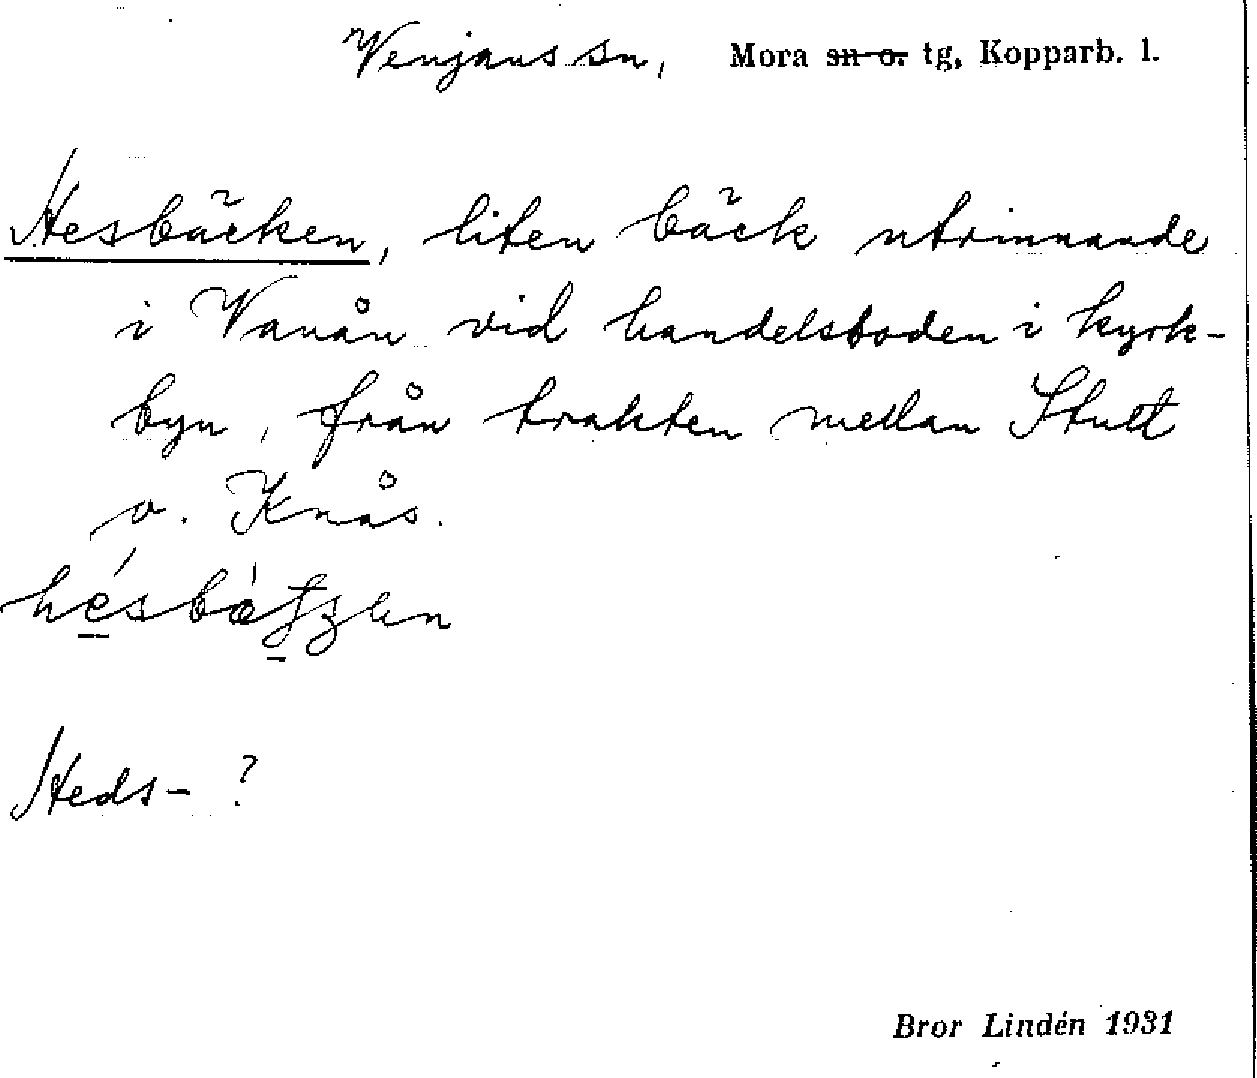 Venjans sn, Mora sn o. tg, Kopparb. l.
Hesbäcken, liten bäck utrinnande
i Vanån vid handelsboden i kyrk-
byn, från trakten mellan Stutt
o. Knås.
Heds- ?
Bror Lindén 1931